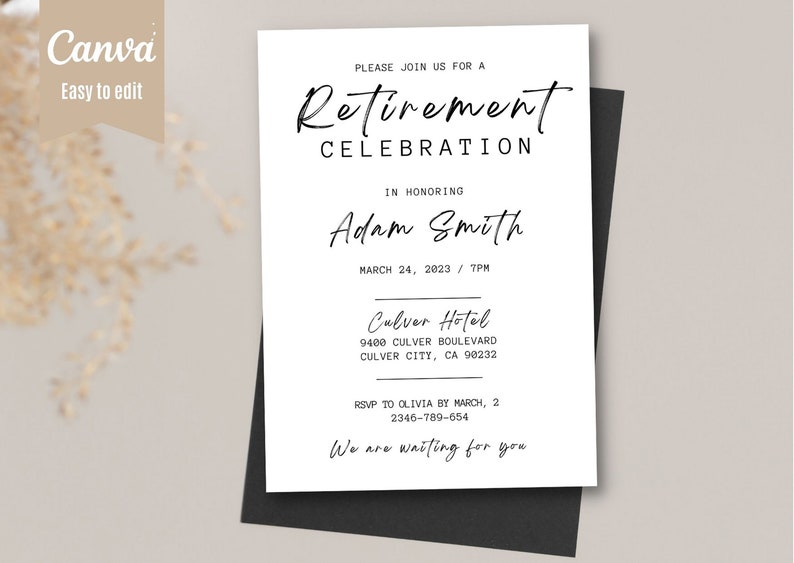 Canva
Easy to edit
PLEASE JOIN US FOR A
Retirement
CELEBRATION
IN HONORING
Adam Smith
MARCH 24, 2023 / 7PM
Culver Hotel
9400 CULVER BOULEVARD
CULVER CITY, CA 90232
RSVP TO OLIVIA BY MARCH, 2
2346-789-654
We are waiting for you